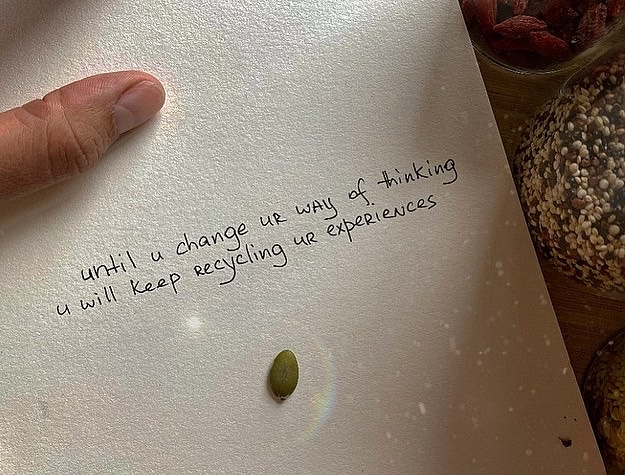 until u change ur way of thinking
u will keep recycling ur experiences